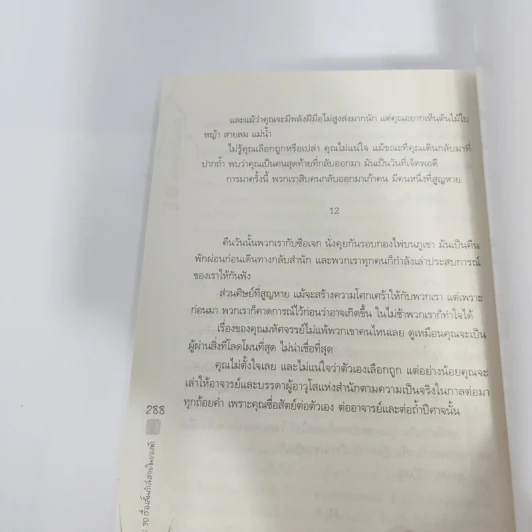 และแม้ว่าคุณจะมีพลังฝีมือไม่สูงส่งมากนัก แต่คุณอยากเห็นต้นไม้ใบ
หญ้า สายลม แม่น้ำ
ไม่รู้คุณเลือกถูกหรือเปล่า คุณไม่แน่ใจ แม้ขณะที่คุณเดินกลับมาที่
ปากถ้ำ พบว่าคุณเป็นคนสุดท้ายที่กลับออกมา มันเป็นวันที่เจ็ดพอดี
การมาครั้งนี้ พวกเราสิบคนกลับออกมาเก้าคน มีคนหนึ่งที่สูญหาย
12
คืนวันนั้นพวกเรากับซือเจก นั่งคุยกันรอบกองไฟบนภูเขา มันเป็นคืน
พักผ่อนก่อนเดินทางกลับสำนัก และพวกเราทุกคนก็กำลังเล่าประสบการณ์
ของเราให้กันฟัง
ส่วนศิษย์ที่สูญหาย แม้จะสร้างความโศกเศร้าให้กับพวกเรา แต่เพราะ
ก่อนมา พวกเราก็คาดการณ์ไว้ก่อนว่าอาจเกิดขึ้น ในไม่ช้าพวกเราก็ทำใจได้
เรื่องของคุณมหัศจรรย์ไม่แพ้พวกเขาคนไหนเลย ดูเหมือนคุณจะเป็น
ผู้ผ่านสิ่งที่โลดโผนที่สุด ไม่น่าเชื่อที่สุด
คุณไม่ตั้งใจเลย และไม่แน่ใจว่าตัวเองเลือกถูก แต่อย่างน้อยคุณจะ
เล่าให้อาจารย์และบรรดาผู้อาวุโสแห่งสำนักตามความเป็นจริงในกาลต่อมา
ทุกถ้อยคำ เพราะคุณซื่อสัตย์ต่อตัวเอง ต่ออาจารย์และต่อถ้ำปีศาจนั้น
288